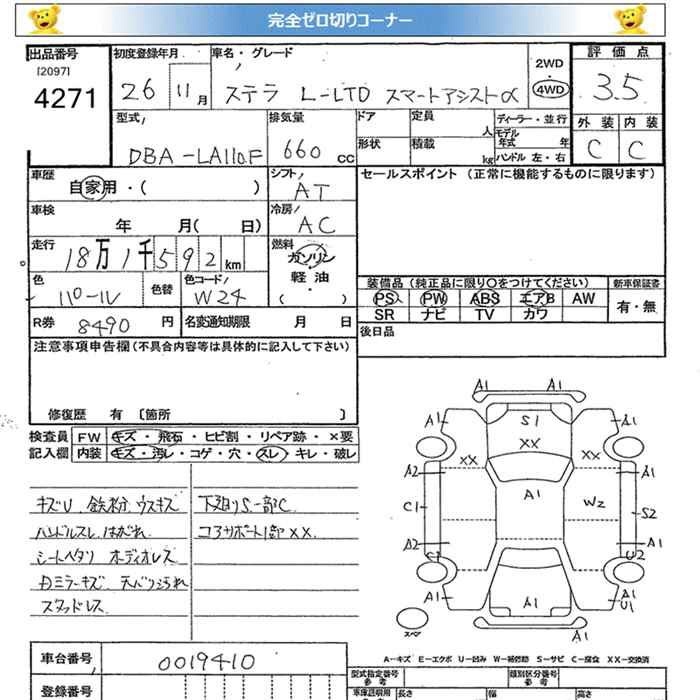 完全ゼロ切りコーナー
出品番号 [2097] 4271
初度登録年月 26 11月
車名・グレード ステラ L-LTD スマートアシストα
2WD・4WD
評価点 3.5
外装 内装
C C
型式 DBA-LA110F
排気量 660 cc
ドア 形状
定員 人
積載 kg
ディーラー・並行
モデル年式 年
ハンドル 左・右
車歴 自家用・( )
シフト AT
セールスポイント (正常に機能するものに限ります)
車検 年 月( 日)
冷房 AC
走行 18万1千592km
燃料 ガソリン
軽油・( )
色 パール
色替
色コード W24
装備品 (純正品に限り○をつけてください)
新車保証書
PS PW ABS エアB AW
有・無
SR ナビ TV カワ
R券 8490 円
名変通知期限 月 日
後日品
注意事項申告欄(不具合内容等は具体的に記入して下さい)
修復歴 有 〔箇所 〕
検査員記入欄
FW キズ・飛石・ヒビ割・リペア跡・×要
内装 キズ・汚レ・コゲ・穴・スレ・キレ・破レ
キズU 鉄粉 ウスキズ
下廻りS一部C
ハンドルスレ はがれ
コアサポート1部××
シートヘタリ ボディオレズ
内ミラーキズ 天バリよごれ
スタッドレス
A1 A1
A1 S1 A1
XX
XX XX
A2 A1 A1
C1 W2 S2
A2 A1
C2 U2
A1 A1 A1
U1
スペア
A1 A1
A-キズ E-エクボ U-凹み W-補修跡 S-サビ C-腐食 XX-交換済
車台番号 0019410
型式指定番号 参考
類別区分番号 参考
登録番号
車庫証明用
長さ 幅 高さ